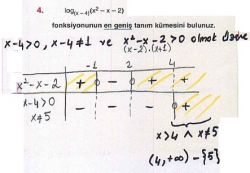 4. log(x−4)(x²−x−2)
fonksiyonunun en geniş tanım kümesini bulunuz.
x-4>0, x-4≠1 ve x²-x-2>0 olmak üzere
(x-2).(x+1)
-1 2 4
x²-x-2 + - + +
x-4>0 - - - +
x≠5
x>4 ∧ x≠5
(4,+∞)-{5}